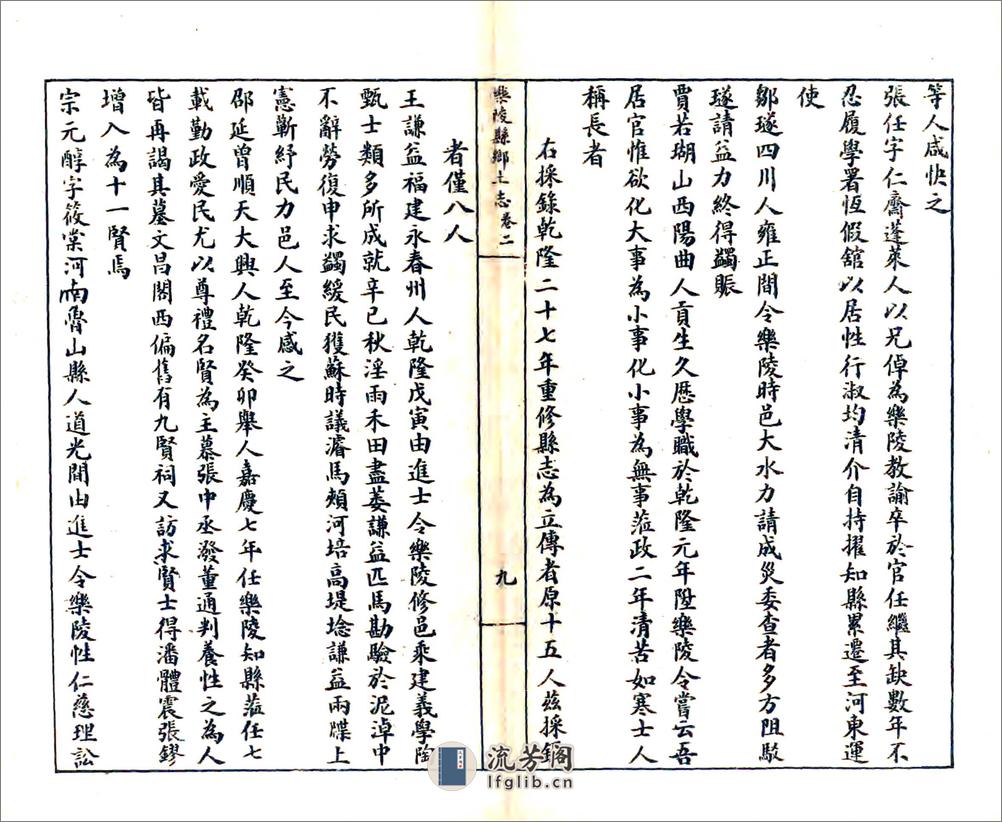 等人咸快之
張任字仁齋蓬萊人以兄倬為樂陵教諭卒於官任繼其缺數年不
忍履學署恆假舘以居性行淑均清介自持擢知縣累遷至河東運
使
鄒璲四川人雍正間令樂陵時邑大水力請成災委查者多方阻駁
璲請益力終得蠲賑
賈若瑚山西陽曲人貢生久歷學職於乾隆元年陞樂陵令嘗云吾
居官惟欲化大事為小事化小事為無事蒞政二年清苦如寒士人
稱長者
右採錄乾隆二十七年重修縣志為立傳者原十五人茲採錄
樂陵縣鄉土志 卷二
九
者僅八人
王謙益福建永春州人乾隆戊寅由進士令樂陵修邑乘建義學陶
甄士類多所成就辛巳秋淫雨禾田盡萎謙益匹馬勘驗於泥淖中
不辭勞復申求蠲緩民獲蘇時議濬馬頰河培高堤埝謙益兩牒上
憲蘄紓民力邑人至今感之
邵延曾順天大興人乾隆癸卯舉人嘉慶七年任樂陵知縣蒞任七
載勤政愛民尤以尊禮名賢為主慕張中丞潑董通判養性之為人
皆再謁其墓文昌閣西偏舊有九賢祠又訪求賢士得潘體震張鏐
增入為十一賢焉
宗元醇字筱棠河南魯山縣人道光間由進士令樂陵性仁慈理訟
流芳閣
lfglib.cn